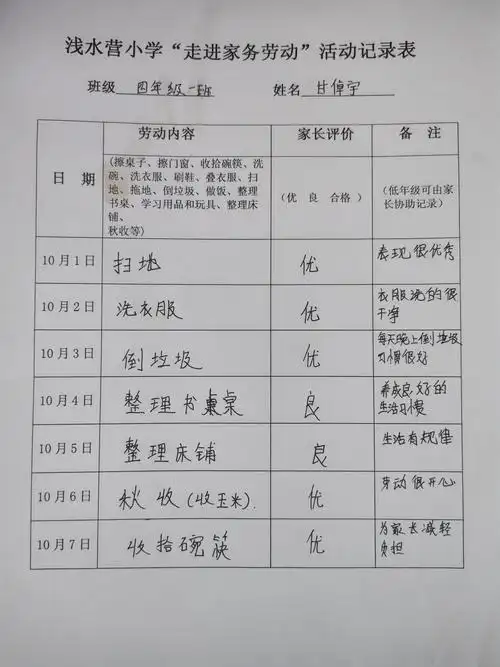 浅水营小学“走进家务劳动”活动记录表
班级 四年级一班 姓名 甘倬宇
日 期 劳动内容 家长评价 备 注
(擦桌子、擦门窗、收拾碗筷、洗
碗、洗衣服、刷鞋、叠衣服、扫
地、拖地、倒垃圾、做饭、整理
书桌、学习用品和玩具、整理床
铺、
秋收等)
(优 良 合格 )
(低年级可由家
长协助记录)
10月1日 扫地 优 表现很优秀
10月2日 洗衣服 优 衣服洗的很
干净
10月3日 倒垃圾 优 每天晚上倒垃圾
习惯很好
10月4日 整理书桌 良 养成良好的
生活习惯
10月5日 整理床铺 良 生活有规律
10月6日 秋收(收玉米). 优 劳动很开心
10月7日 收拾碗筷 优 为家长减轻
负担